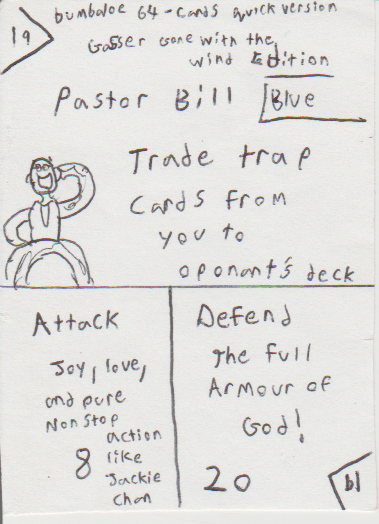 19
bumbaloe 64-cards quick version
Gasser Gone with the
wind Edition
Pastor Bill
Blue
Trade trap
cards from
you to
oponant's deck
Attack
Joy, love,
and pure
Non stop
action
like
Jackie
Chan
8
Defend
The full
Armour of
God!
20
bl